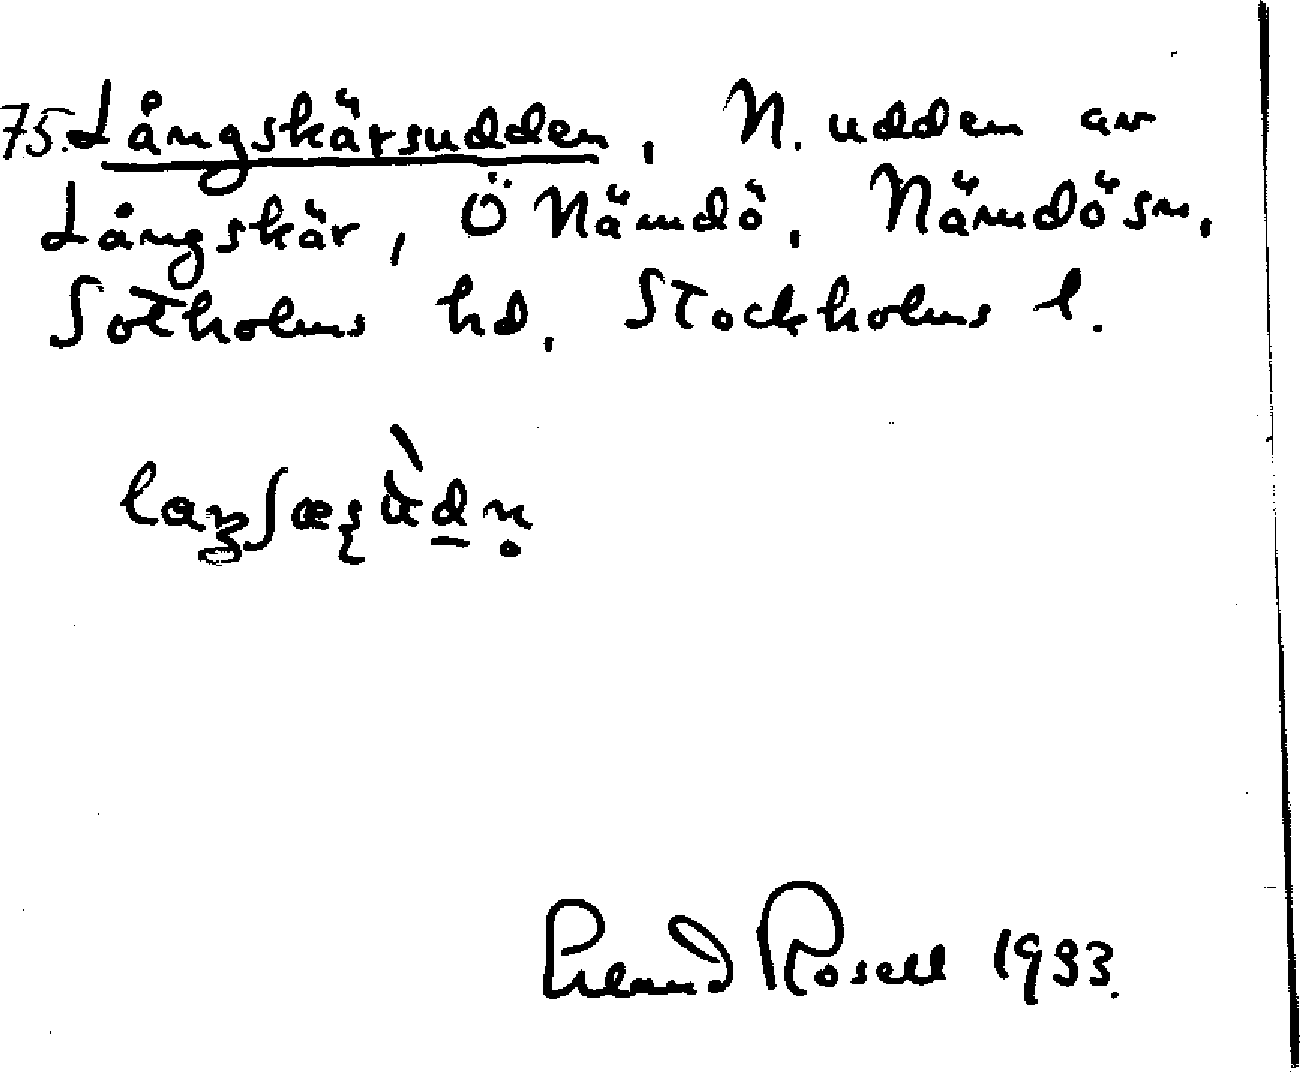 75. Långskärsudden, N. udden av
Långskär, Ö Nämdö, Nämdö sn,
Sotholms hd, Stockholms l.
Erland Rosell 1983.